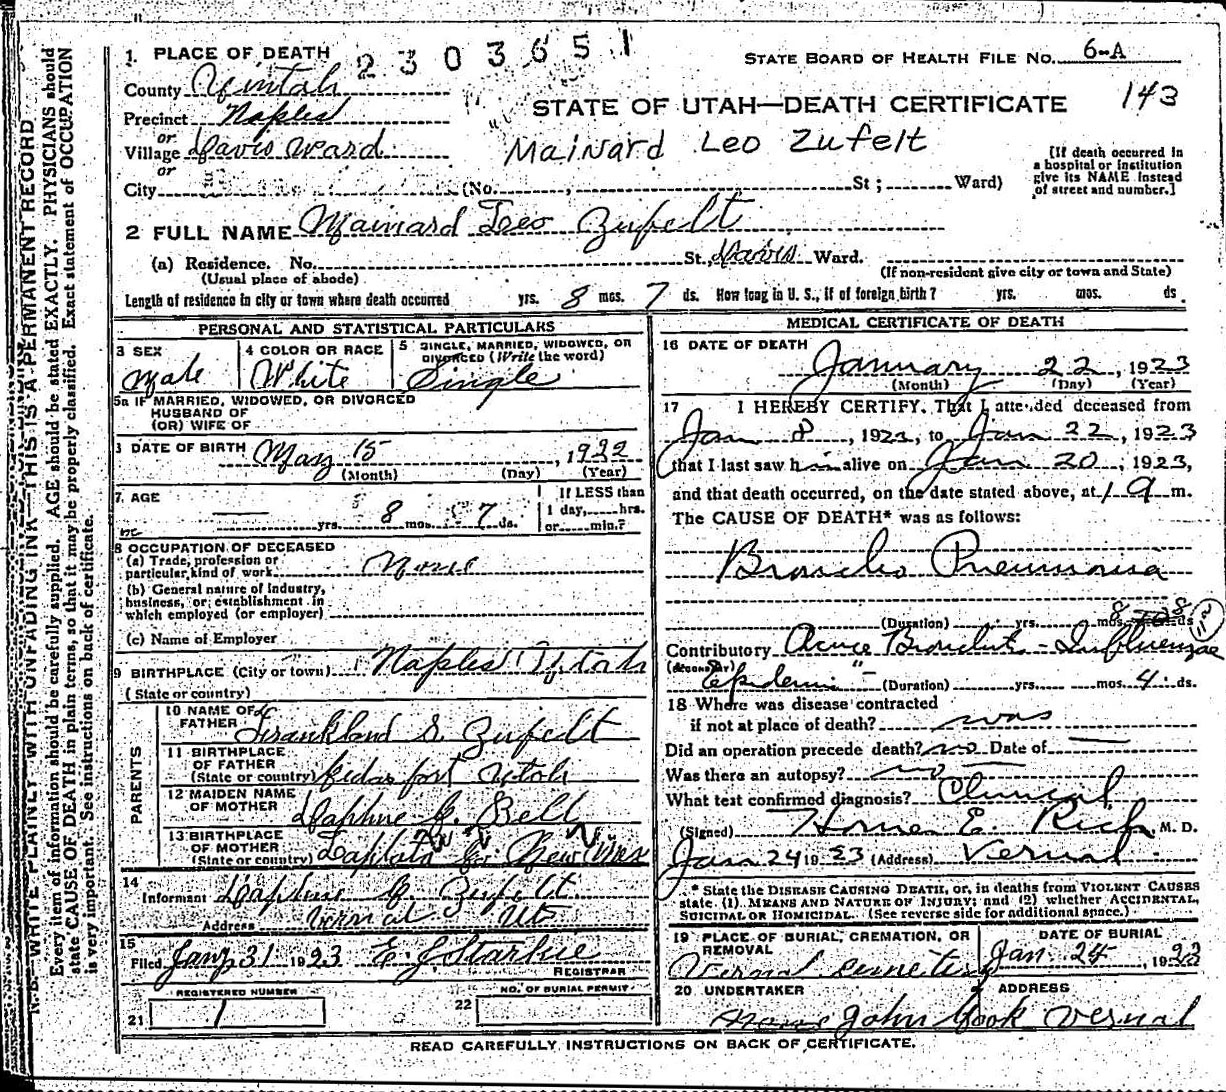 1. PLACE OF DEATH 2 3 0 3 6 5 1
STATE BOARD OF HEALTH FILE NO. 6-A
County Uintah
STATE OF UTAH—DEATH CERTIFICATE 143
Precinct Naples
or
Village Davis Ward
Mainard Leo Zufelt
or
City (No. , St ; Ward)
[If death occurred in
a hospital or institution
give its NAME instead
of street and number.]
2 FULL NAME Mainard Leo Zufelt
(a) Residence. No. St, Davis Ward.
(Usual place of abode) (If non-resident give city or town and State)
Length of residence in city or town where death occurred yrs. 8 mos. 7 ds. How long in U. S., if of foreign birth? yrs. mos. ds.
PERSONAL AND STATISTICAL PARTICULARS
3 SEX Male
4 COLOR OR RACE White
5 SINGLE, MARRIED, WIDOWED, OR
DIVORCED (Write the word) Single
5a IF MARRIED, WIDOWED, OR DIVORCED
HUSBAND OF
(OR) WIFE OF
DATE OF BIRTH May 15, 1922
(Month) (Day) (Year)
7. AGE — yrs. 8 mos. 7 ds.
If LESS than
1 day, hrs.
or min.?
8 OCCUPATION OF DECEASED
(a) Trade, profession or
particular kind of work None
(b) General nature of industry,
business, or establishment in
which employed (or employer)
(c) Name of Employer
9 BIRTHPLACE (City or town) Naples Utah
(State or country)
PARENTS
10 NAME OF
FATHER Frankland S. Zufelt
11 BIRTHPLACE
OF FATHER
(State or country) Cedar fort Utah
12 MAIDEN NAME
OF MOTHER Daphne C. Bell
13 BIRTHPLACE
OF MOTHER
(State or country) Laplata New Mex
14
Informant Daphne C Zufelt
Address Vernal Ut
15
Filed Jany 31 1923 E J Starkie
REGISTRAR
REGISTERED NUMBER
21 1
NO. OF BURIAL PERMIT
22
MEDICAL CERTIFICATE OF DEATH
16 DATE OF DEATH
January 22, 1923
(Month) (Day) (Year)
17 I HEREBY CERTIFY, That I attended deceased from
Jan 8, 192, to Jan 22, 1923
that I last saw him alive on Jan 20, 1923,
and that death occurred, on the date stated above, at 1 9 m.
The CAUSE OF DEATH* was as follows:
Broncho Pneumonia
(Duration) yrs. mos. 8 ds
Contributory Acute Bronchitis - Influenzae
(SECONDARY) Epidemic (Duration) yrs. mos. 4 ds.
18 Where was disease contracted
if not at place of death? was
Did an operation precede death? no Date of —
Was there an autopsy? no
What test confirmed diagnosis? Clinical
(Signed) Homer E. Rich, M. D.
Jan 24 1923 (Address) Vernal
* State the DISEASE CAUSING DEATH, or, in deaths from VIOLENT CAUSES
state (1) MEANS AND NATURE OF INJURY; and (2) whether ACCIDENTAL,
SUICIDAL OR HOMICIDAL. (See reverse side for additional space.)
19 PLACE OF BURIAL, CREMATION, OR
REMOVAL
Vernal cemetery
DATE OF BURIAL
Jan. 24, 1923
20 UNDERTAKER ADDRESS
None John Cook Vernal
READ CAREFULLY INSTRUCTIONS ON BACK OF CERTIFICATE.
N. B.—WRITE PLAINLY WITH UNFADING INK—THIS IS A PERMANENT RECORD
Every item of information should be carefully supplied. AGE should be stated EXACTLY. PHYSICIANS should
state CAUSE OF DEATH in plain terms, so that it may be properly classified. Exact statement of OCCUPATION
is very important. See instructions on back of certificate.